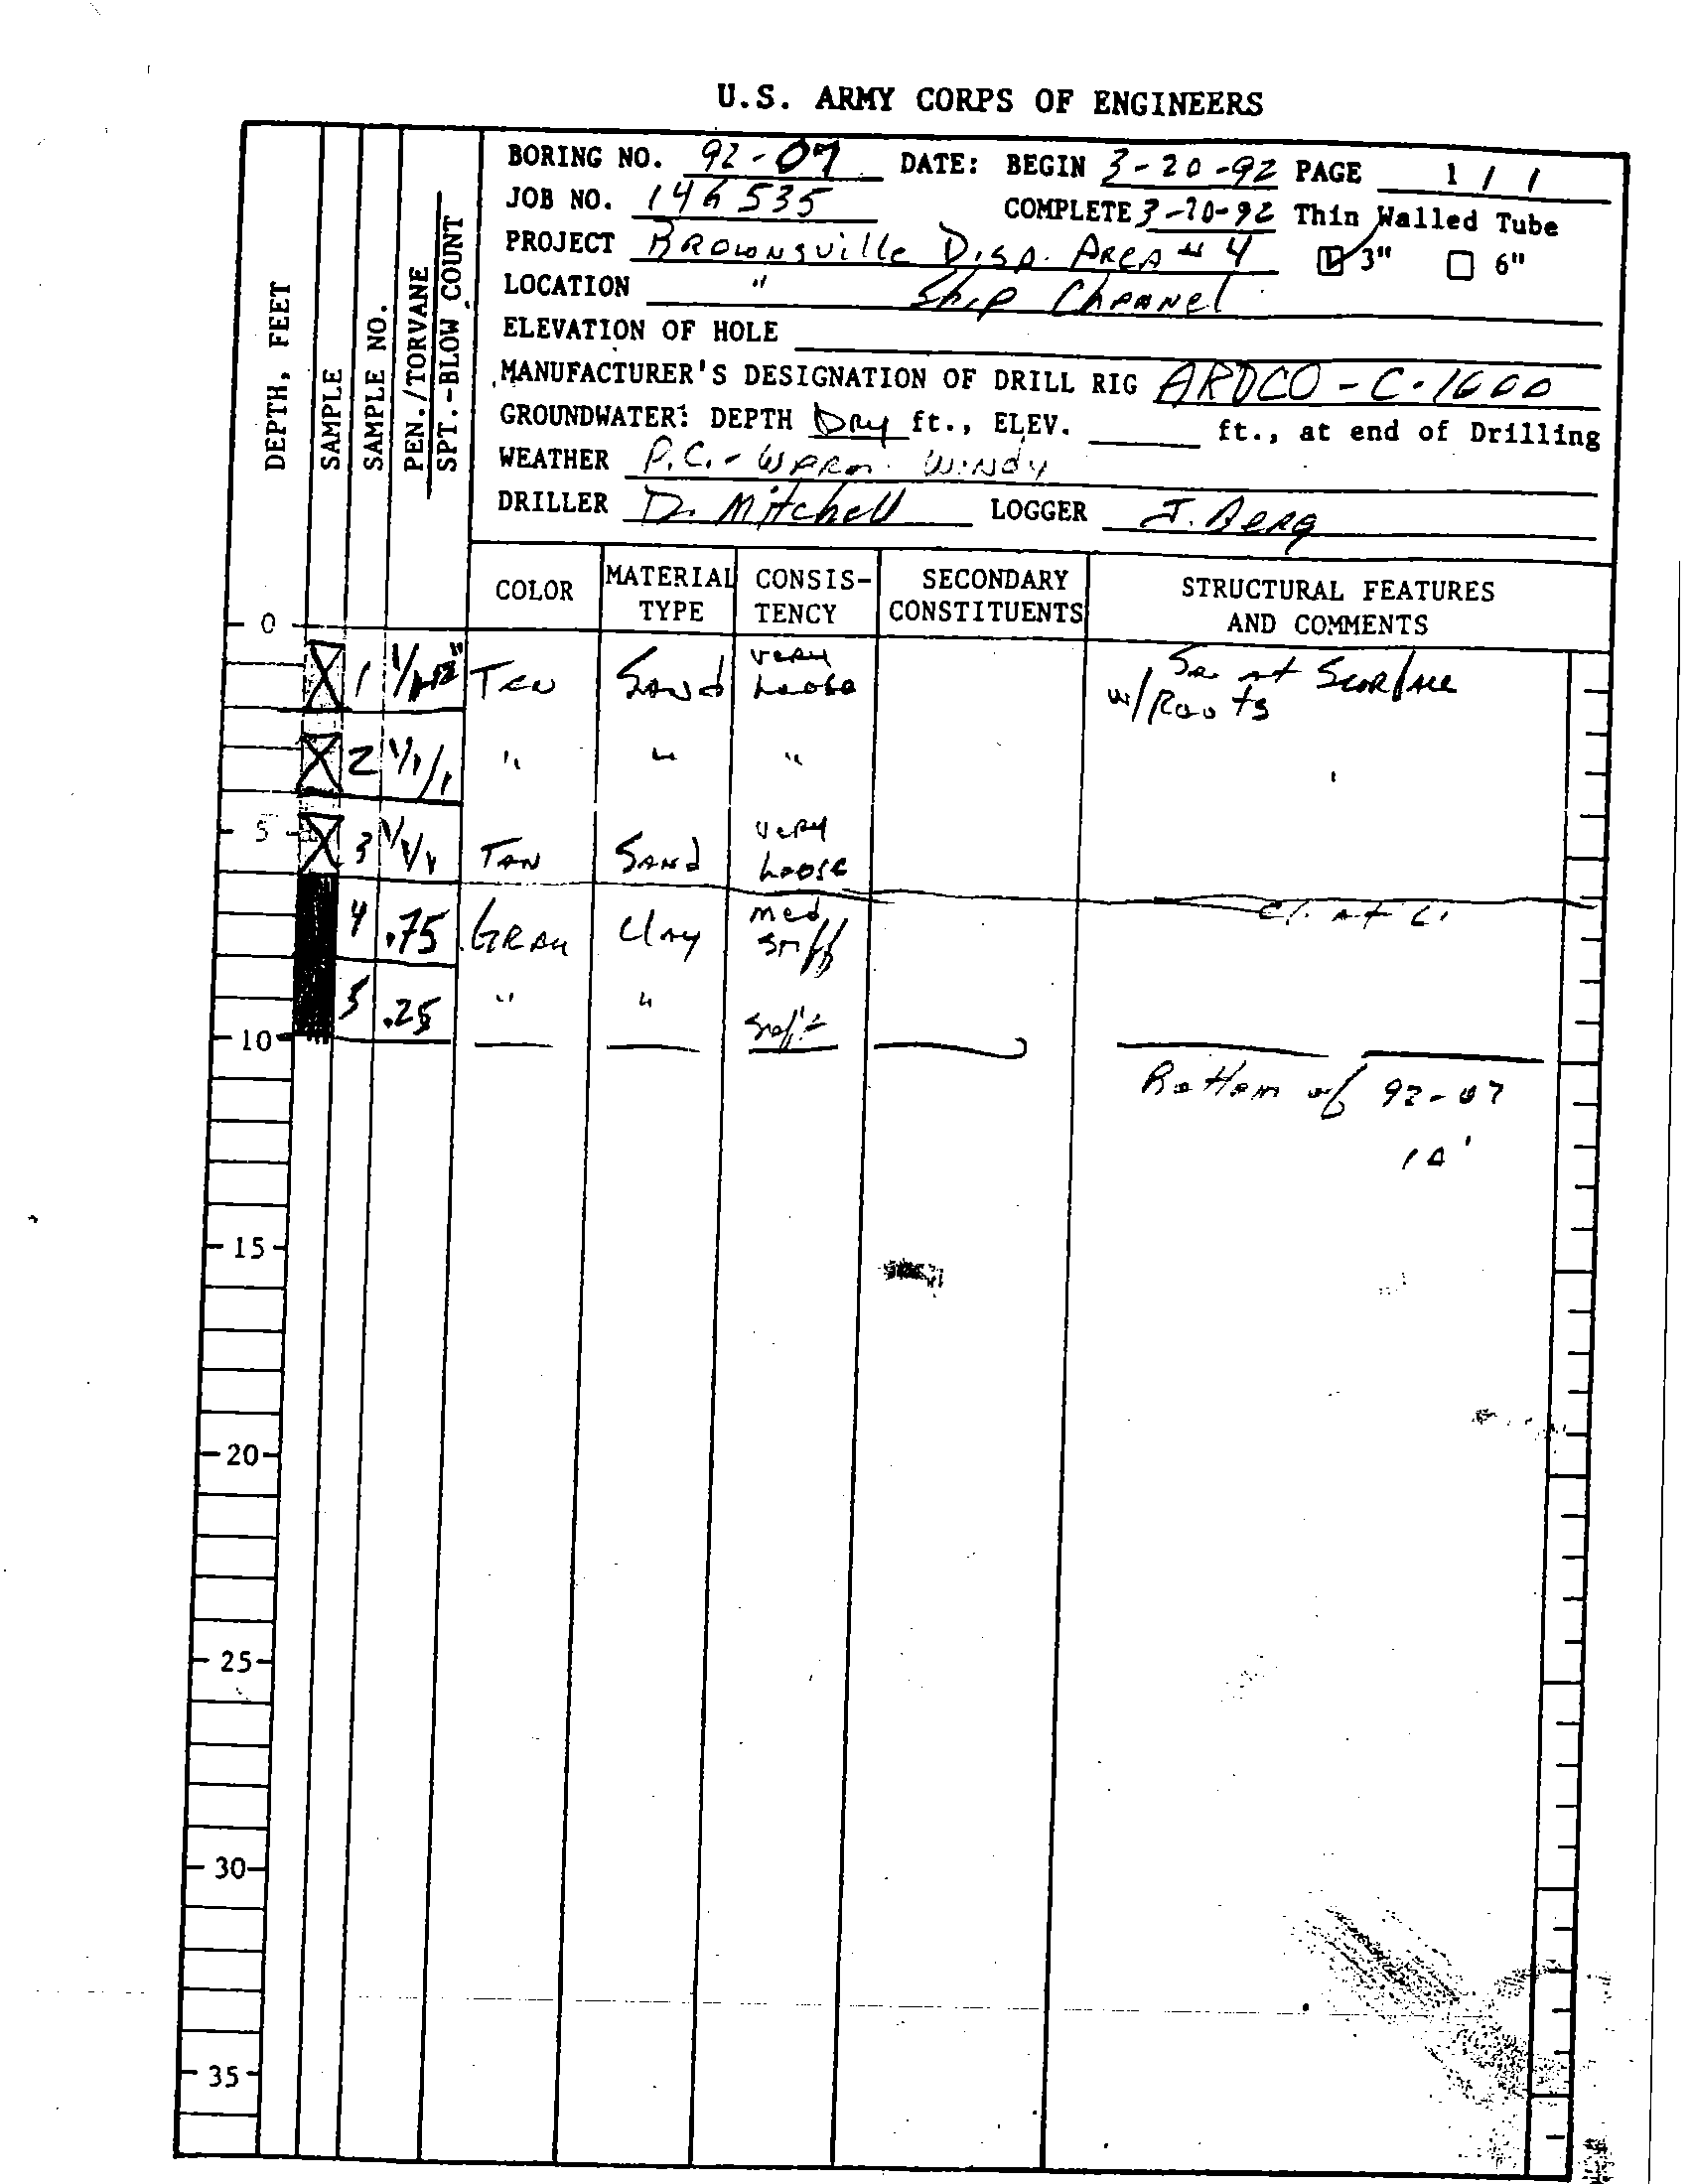 U.S. ARMY CORPS OF ENGINEERS
BORING NO. 92-07 DATE: BEGIN 3-20-92 PAGE 1 / 1
JOB NO. 146535 COMPLETE 3-20-92 Thin Walled Tube
PROJECT Brownsville Disp. Area # 4 3" 6"
LOCATION " Ship Channel
ELEVATION OF HOLE
MANUFACTURER'S DESIGNATION OF DRILL RIG ARDCO - C-1600
GROUNDWATER: DEPTH Dry ft., ELEV. ft., at end of Drilling
WEATHER P.C. - Warm. Windy
DRILLER D. Mitchell LOGGER J. Berg
DEPTH, FEET
SAMPLE
SAMPLE NO.
PEN./TORVANE
SPT.-BLOW COUNT
COLOR MATERIAL TYPE CONSIS-TENCY SECONDARY CONSTITUENTS STRUCTURAL FEATURES AND COMMENTS
0
1 Tan Sand very Loose Sa. at Surface
w/Roots
2 1/1/1 " " "
5 3 1/1/1 Tan Sand very Loose
4 .75 Gray Clay med stiff Cl. at 6'
5 .25 " " soft
10
Bottom of 92-07
10'
15
20
25
30
35